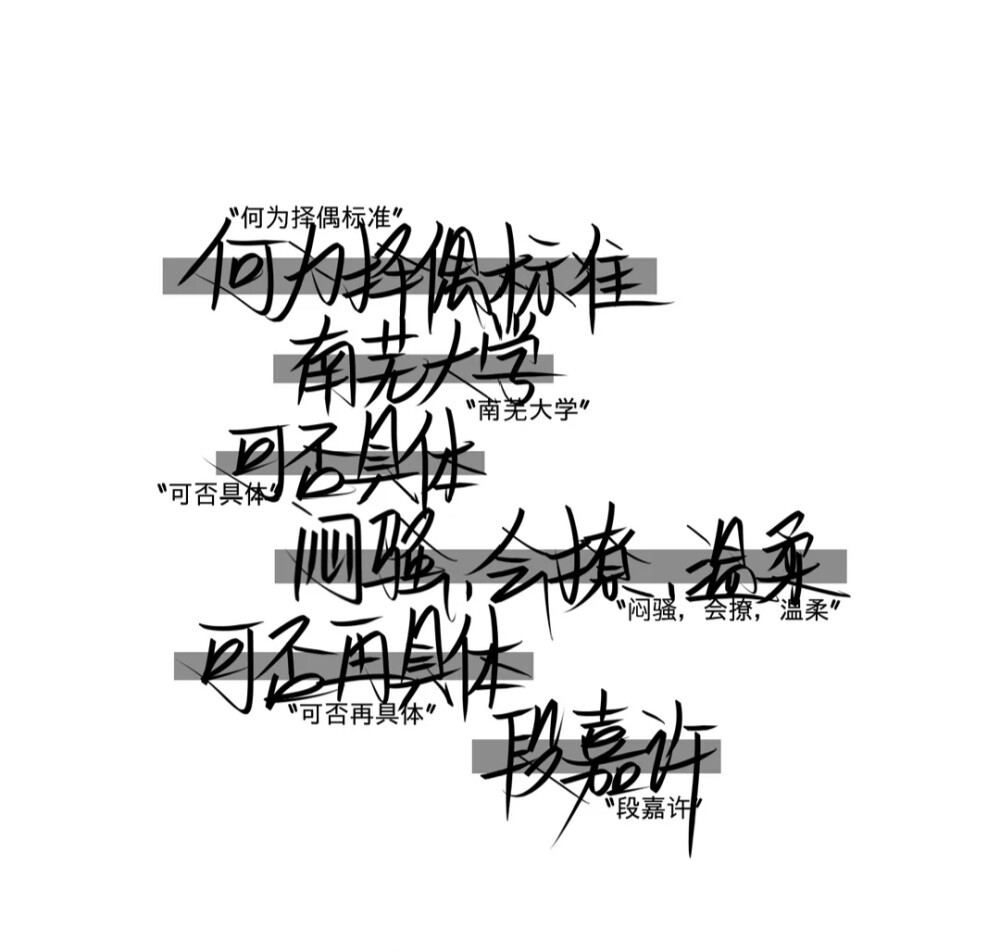 “何为择偶标准”
何为择偶标准
南芜大学
“南芜大学”
可否具体
“可否具体”
闷骚,会撩,温柔
“闷骚，会撩，温柔”
可否再具体
“可否再具体”
段嘉许
“段嘉许”